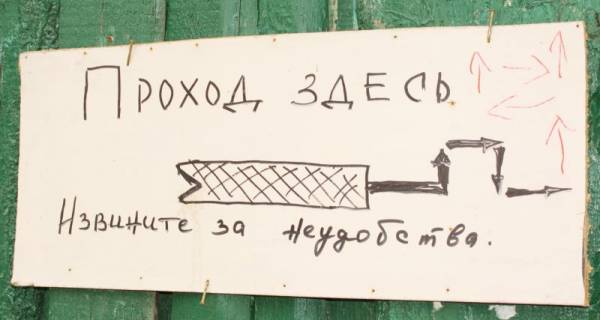 Проход здесь
Извините за неудобства.